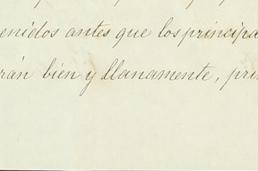 enidos antes que los principa
rán bien y llanamente, pri